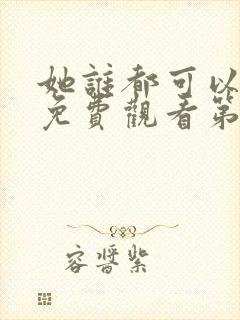 她誰都可以
免費觀看第
容晉紫